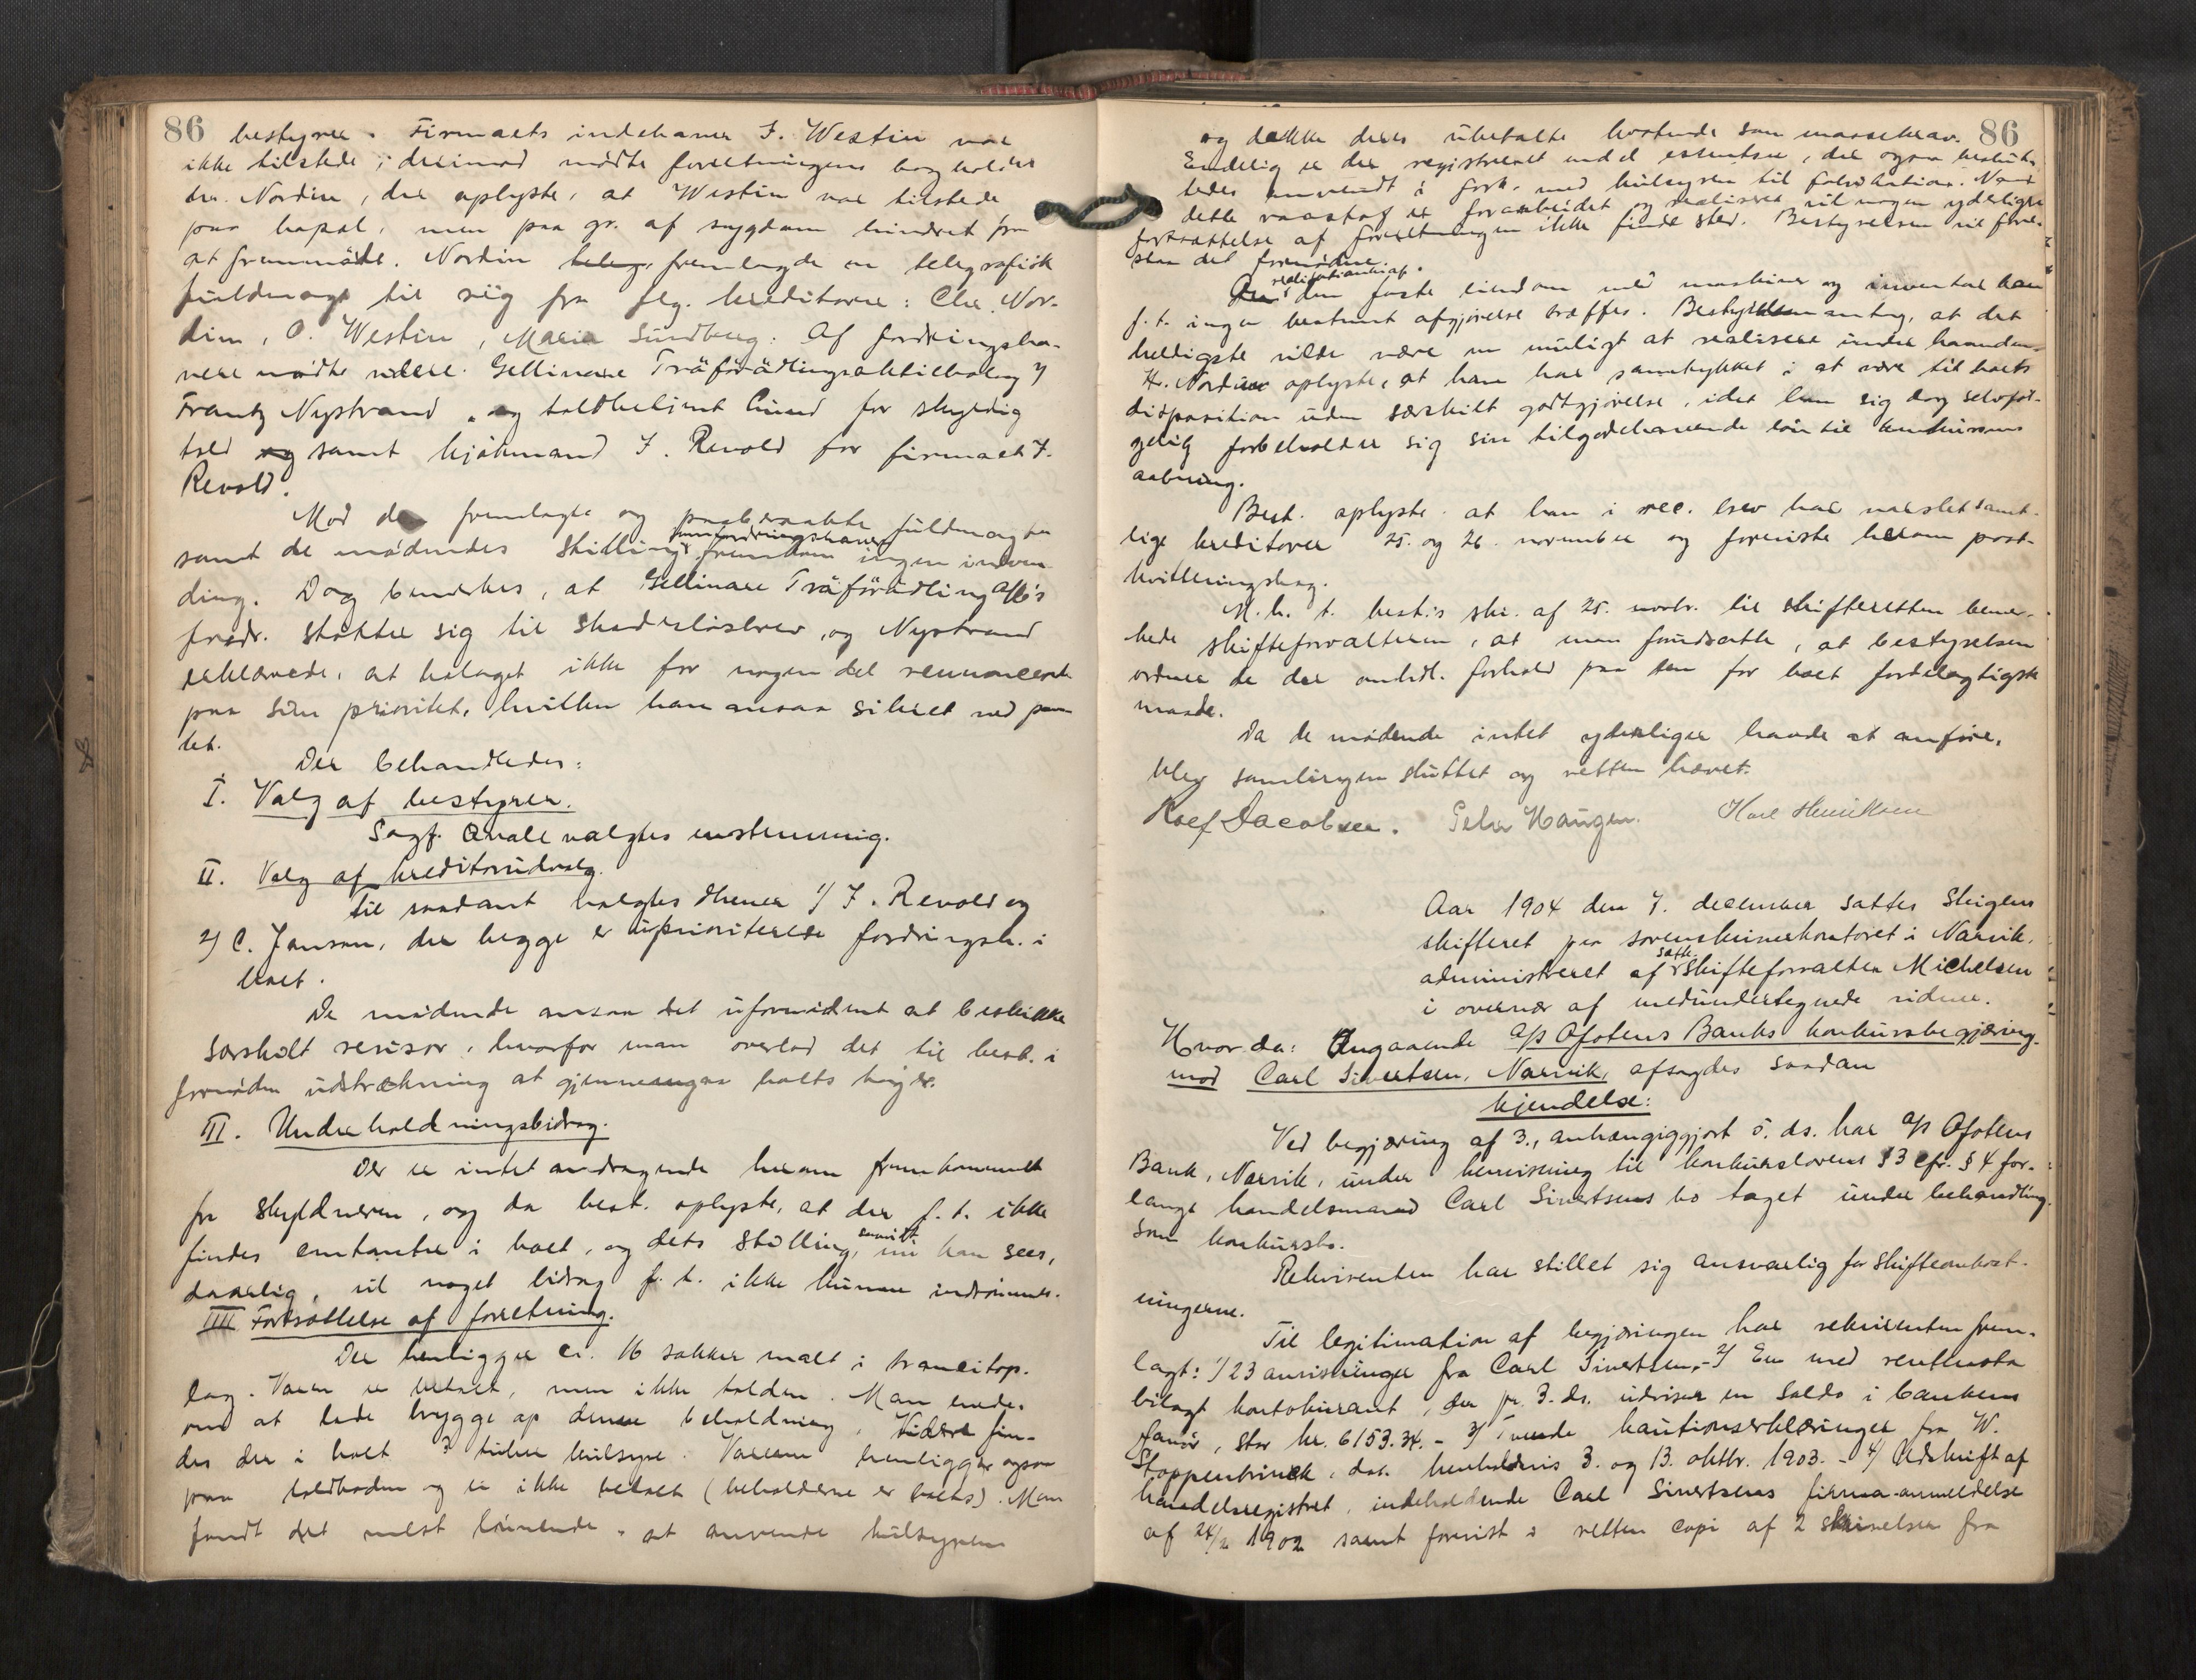 86 bestyrer. Firmaets indehaver J. Westin var
ikke tilstede; derimod mødte forretningens bogholder
hr. Nordin, der oplyste, at Westin var tilstede
paa kapal, men paa gr. af sygdom hindret fra
at fremmøde. Nordin fremlagde en telegrafisk
fuldmagt til sig fra flg. kreditorer: Chr. Nor-
din, O. Westin, Maria Sundberg. Af fordringsha-
vere mødte videre: Gellivare Träförädlingsaktiebolag v/
Frantz Nystrand, og toldbetjent Lund for skyldig
told samt kjøbmand J. Revold for firmaet J.
Revold.
Mod de fremlagte og paaberaabte fuldmagter
samt de mødendes stilling som fordringshavere fremkom ingen indven-
ding. Dog bemerkes, at Gellivare Träförädling AB's
fordr. støtter sig til skadesløsbrev, og Nystrand
erklærede, at bolaget ikke for nogen del renoncerte
paa sin prioritet, hvilken han ansaa sikret ved pan-
tet.
Der behandledes:
I. Valg af bestyrer.
Sagf. Qvale valgtes enstemmig.
II. Valg af kreditorudvalg.
Til saadant valgtes dhrr. 1/ J. Revold og
2/ C. Janson, der begge er uprioriterede fordringsh. i
boet.
De mødende ansaa det ufornødent at beskikke
særskilt revisor, hvorfor man overlod det til best. i
fornøden udstrækning at gjennemgaa boets bøger.
III. Underholdningsbidrag.
Der er intet andragende herom fremkommet
fra skyldneren, og da best. oplyste, at der f. t. ikke
findes contanter i boet, og dets stilling, saavidt nu kan sees,
daarlig, vil noget bidrag f. t. ikke kunne indrømmes.
IIII Fortsættelse af forretning.
Der henligger ca. 16 sækker malt i transitop-
lag. Varen er betalt, men ikke tolden. Man enedes
om at lade brygge op denne beholdning. Videre fin-
des der i boet 3 tuber kulsyre. Varerne henligger ogsaa
paa toldboden og er ikke betalt (beholderne er boets). Man
fandt det mest lønnende at anvende kulsyren
og dække deres ubetalte kostende som massekrav. 86
Endelig er der registreret endel essentser, der ogsaa beslut-
tedes anvendt i forb. med kulsyren til fabrikation. Naar
dette raastof er forarbeidet og realiseret vil nogen yderligere
fortsættelse af forretningen ikke finde sted. Bestyrelsen vil fore-
staa det fornødne.
Om realisation af den faste eiendom med maskiner og inventar kan
f. t. ingen bestemt afgjørelse træffes. Bestyrelsen antog, at det
heldigste vilde være om muligt at realisere under haanden.
Hr. Nordin oplyste, at han har samtykket i at være til boets
disposition uden særskilt godtgjørelse, idet han sig dog selvføl-
gelig forbeholder sig sin tilgodehavende løn til konkursens
aabning.
Best. oplyste at han i rec. brev har varslet samt-
lige kreditorer 25. og 26. november og foreviste herom post-
kvitteringsbog.
M. h. t. best.s skr. af 25. novbr. til skifteretten bemer-
kede skifteforvalteren, at man forudsatte, at bestyrelsen
ordner de der omhdl. forhold paa den for boet fordelagtigste
maade.
Da de mødende intet yderligere havde at anføre,
blev samlingen sluttet og retten hævet.
Rolf Jacobsen. Peter Haugen. Karl Henriksen
Aar 1904 den 7. december sattes Steigens
skifteret paa sorenskriverkontoret i Narvik,
administreret af sætteskifteforvalter Michelsen
i overvær af medundertegnede vidner.
Hvor da: Angaaende A/S Ofotens Banks konkursbegjæring
mod Carl Sivertsen, Narvik, afsagdes saadan
kjendelse:
Ved begjæring af 3., anhængiggjort 5. ds. har A/S Ofotens
Bank, Narvik, under henvisning til konkurslovens § 3 cfr. § 4 for-
langt handelsmand Carl Sivertsens bo taget under behandling
som konkursbo.
Rekvirenten har stillet sig ansvarlig for skifteomkost-
ningerne.
Til legitimation af begjæringen har rekvirenten frem-
lagt: 1/ 23 anvisninger fra Carl Sivertsen, - 2/ En med rentenota
bilagt kontokurant, der pr. 3. ds. udviser en saldo i bankens
favør, stor kr. 6153.34. - 3/ Tvende kautionserklæringer fra W.
Stoppenbrinck, dat. henholdsvis 3. og 13. oktbr. 1903. - 4/ Udskrift af
handelsregistret, indeholdende Carl Sivertsens firma-anmeldelse
af 24/2 1902 samt forevist i retten copi af 2 skrivelser fra